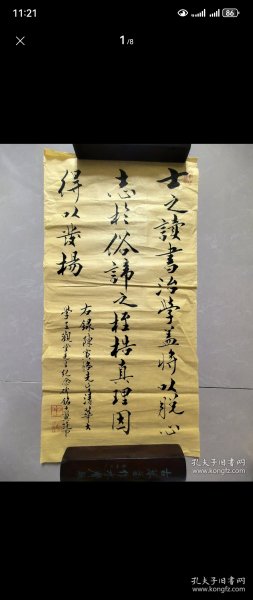 11:21
86
1/8
士之讀書治學蓋將以脫心
志於俗諦之桎梏真理因
得以發揚
右録陳寅恪先生清華大
學王觀堂先生紀念碑銘
孔夫子旧书网
kongfz.com
孔夫子旧书网
www.kongfz.com